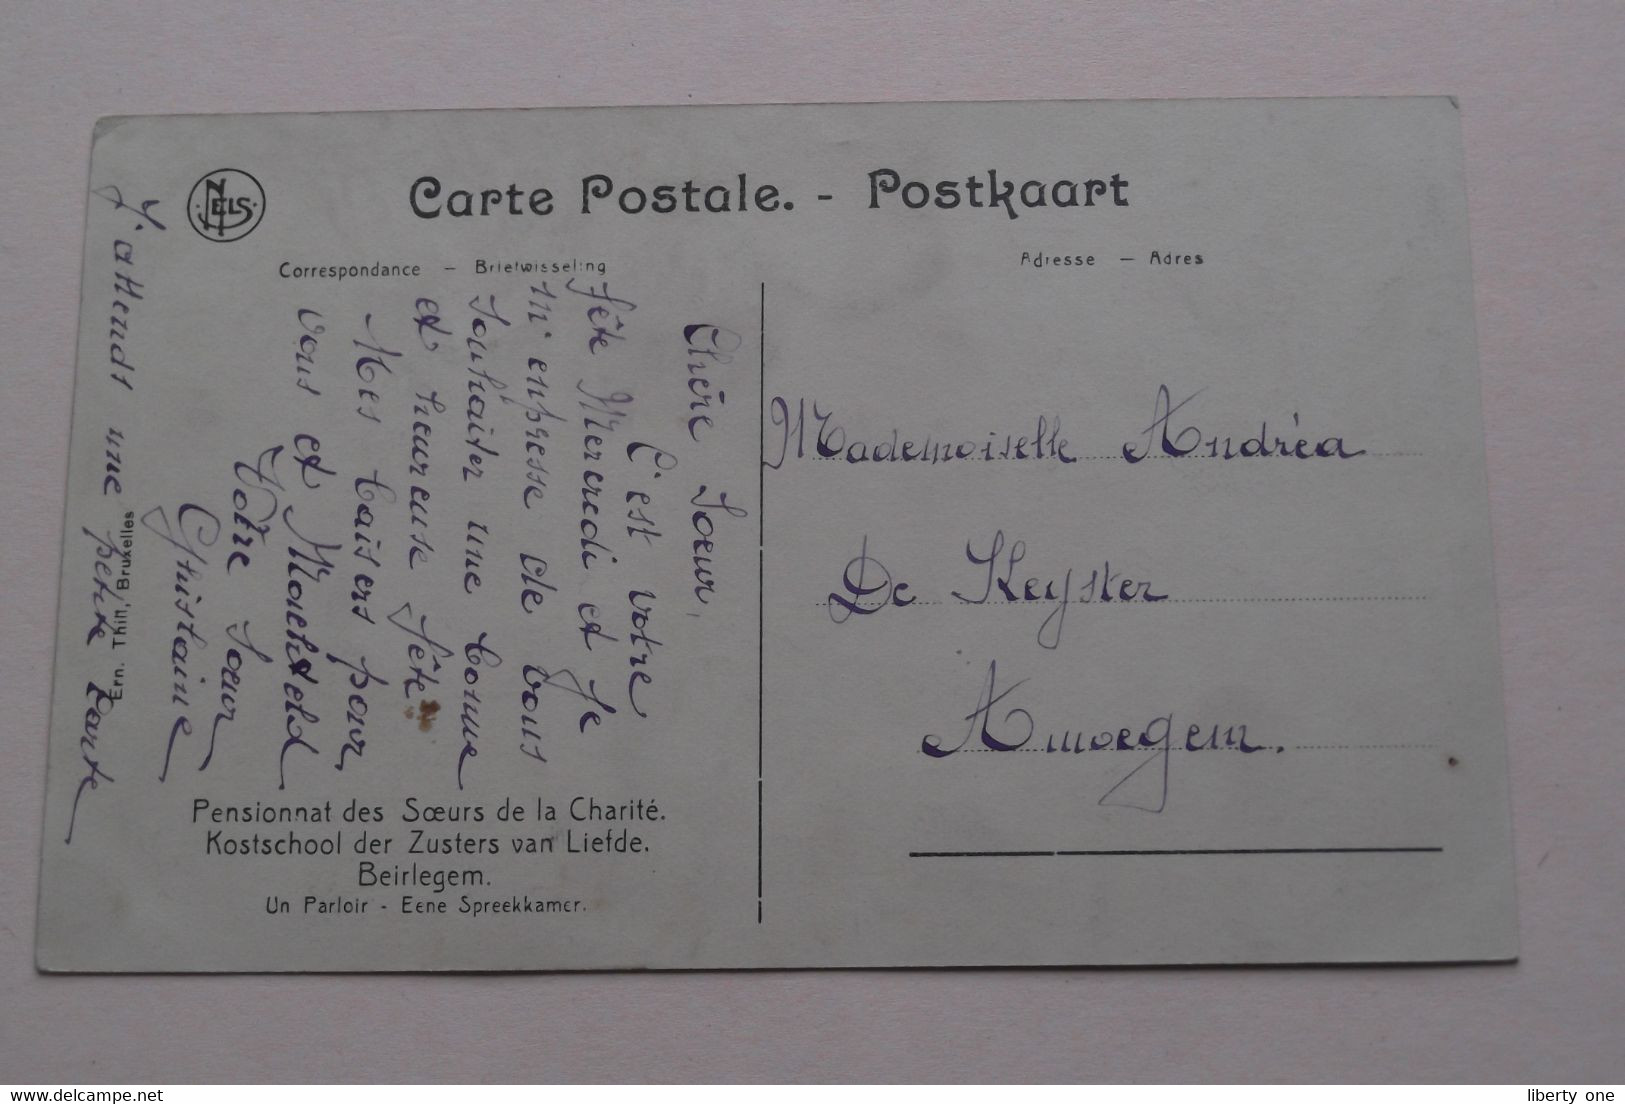 NELS
Carte Postale. - Postkaart
Correspondance - Briefwisseling
Adresse - Adres
Chère Soeur,
C'est votre
fête Mercredi et je
m'enpresse de vous
souhaiter une bonne
et heureuse fête
Mes baisers pour
vous et Machteld
Votre soeur
Ghislaine
J'attends une petite carte
Ern. Thill, Bruxelles
Mademoiselle Andréa
De Keyster
Amoegem.
Pensionnat des Sœurs de la Charité.
Kostschool der Zusters van Liefde.
Beirlegem.
Un Parloir - Eene Spreekkamer.
delcampe.net
liberty one